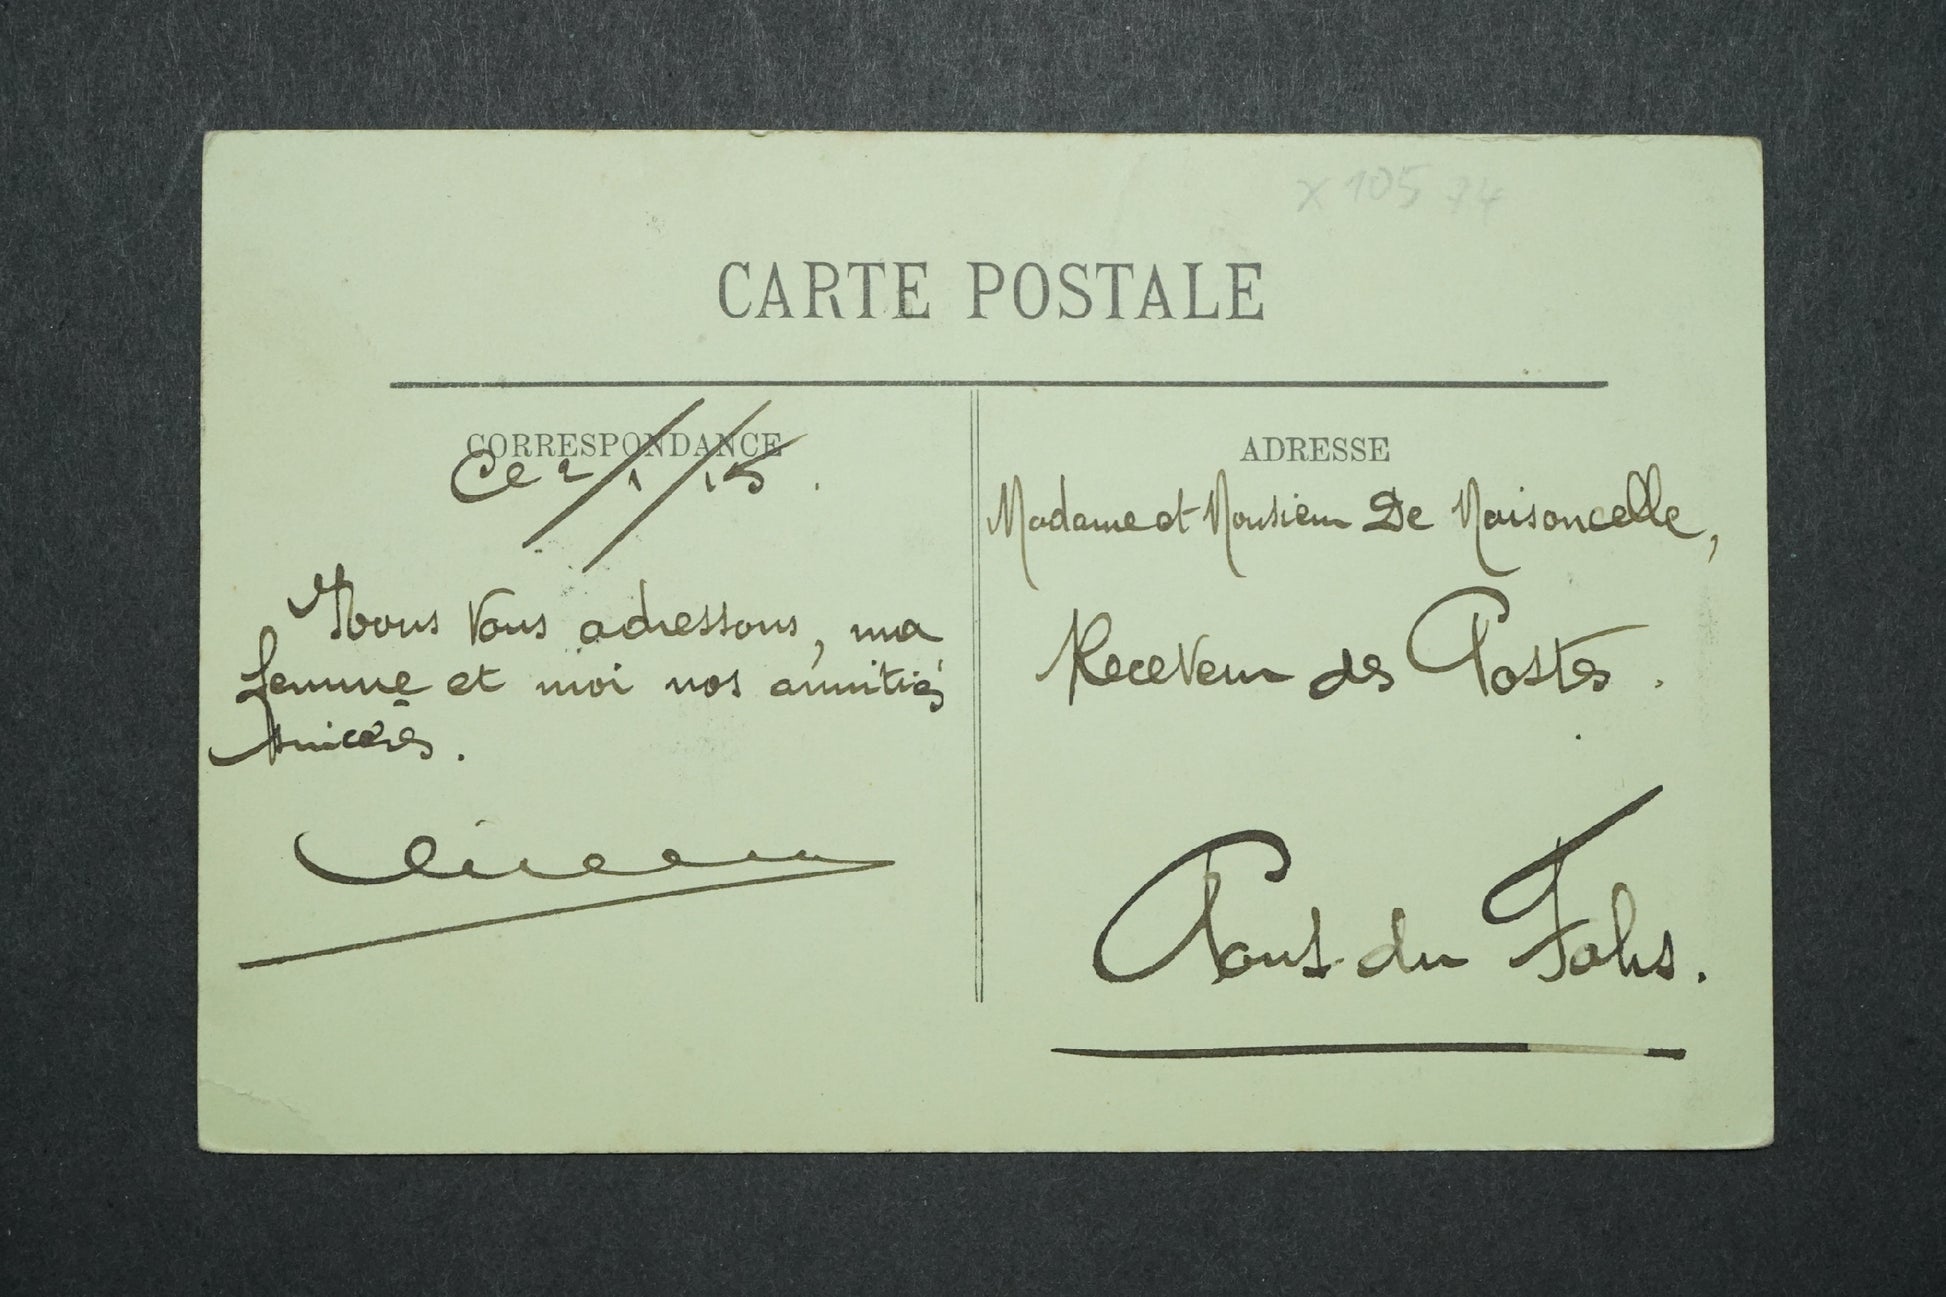 x 105 74
CARTE POSTALE
CORRESPONDANCE
Ce 2/1/15.
Nous Vous adressons, ma
femme et moi nos amitiés
sincères.
ADRESSE
Madame et Monsieur De Maisoncelle,
Receveur des Postes.
Pont du Fahs.